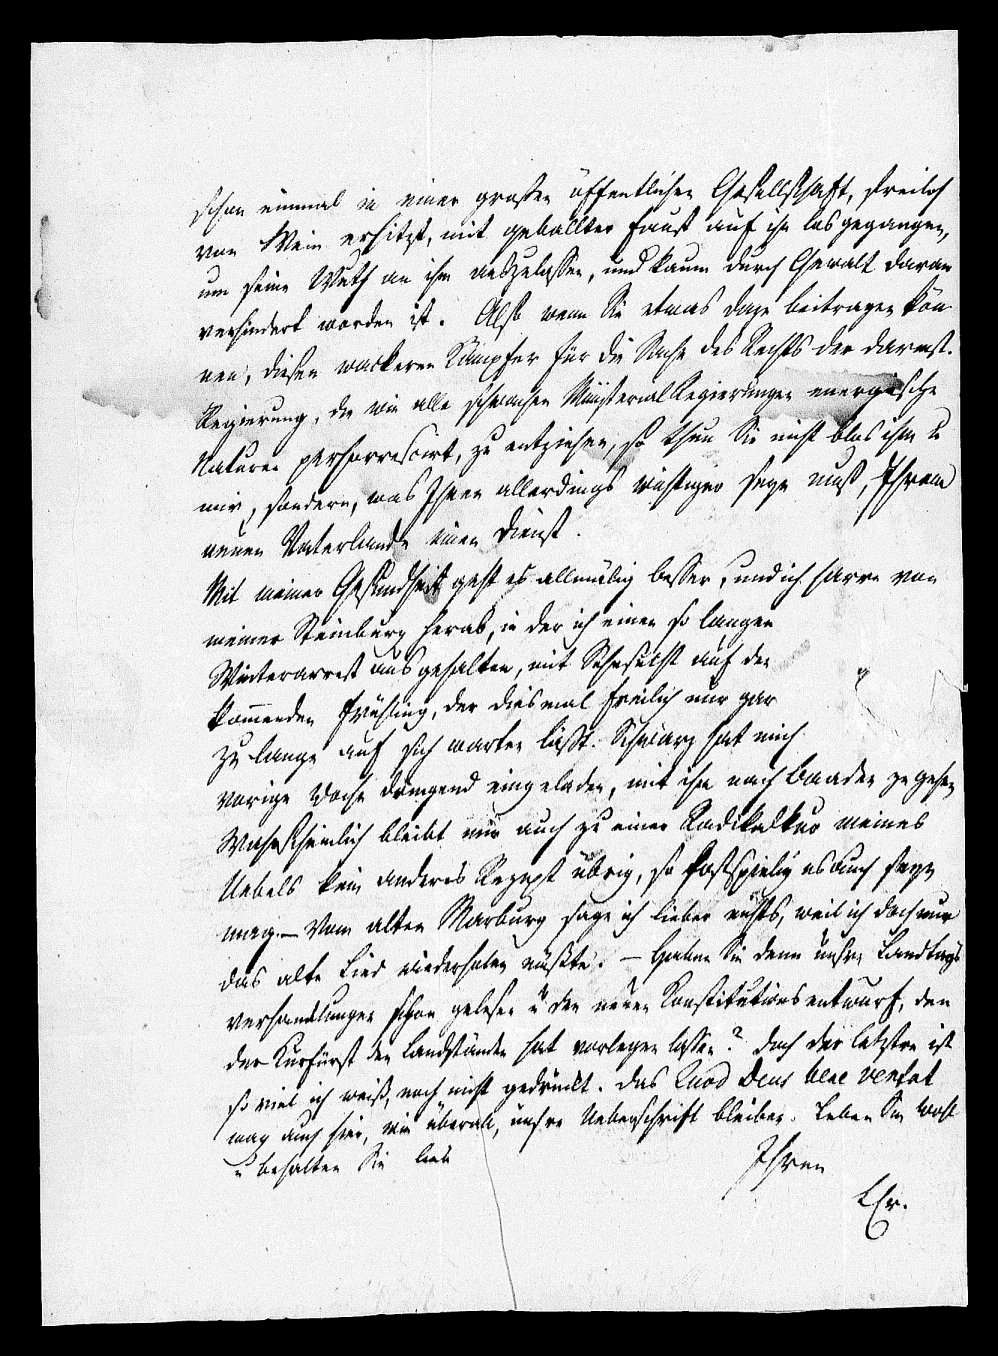 schon einmal in einer großen öffentlichen Gesellschaft, freilich
von Wein erhitzt, mit geballter Faust auf ihn losgegangen,
um seine Wuth an ihm auszulassen, und kaum durch Gewalt daran
verhindert worden ist. Also wenn Sie etwas dazu beitragen kön-
nen, diesen wackeren Kämpfer für die Sache des Rechts der Darmst.
Regierung, die wie alle schwachen Ministerial Regierungen energische
Naturen perhorrescirt, zu entziehen, so thun Sie nicht blos ihm u
mir, sondern, was Ihnen allerdings wichtiger seyn muß, Ihrem
neuen Vaterlande einen Dienst.
Mit meiner Gesundheit geht es allmälig besser, und ich harre von
meiner Steinburg herab, in der ich einen so langen
Winterarrest ausgehalten, mit Sehnsucht auf den
kommenden Frühling, der diesmal freilich nur gar
zu lange auf sich warten läßt. Schwarz hat mich
vorige Woche dringend eingeladen, mit ihm nach Baaden zu gehen
Wahrscheinlich bleibt mir auch zu einer Radikalkur meines
Uebels kein anderes Rezept übrig, so kostspielig es auch seyn
mag. – Vom alten Marburg sage ich lieber nichts, weil ich doch nur
das alte Lied wiederholen müßte. – Haben Sie denn unsre Landtags
verhandlungen schon gelesen u den neuen Konstitutionsentwurf, den
der Kurfürst den Landständen hat vorlegen lassen? Doch der letztre ist
so viel ich weiß, noch nicht gedruckt. Das Quod Deus bene vertat
mag auch hier, wie überall, unsre Ueberschrift bleiben. Leben Sie wohl
u behalten Sie lieb
Ihren